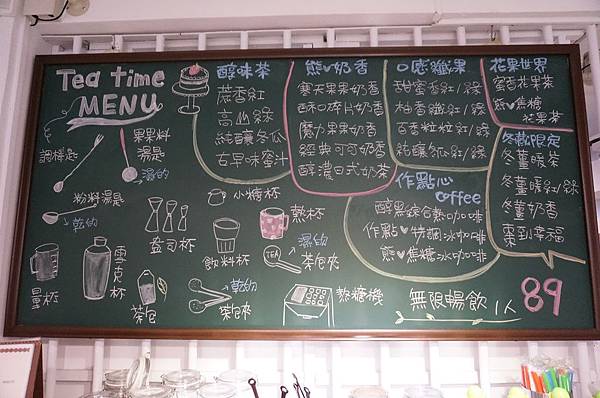 Tea time
MENU
醇味茶
蔗香紅
高山綠
純釀冬瓜
古早味蜜汁
熊♥奶香
寒天果果奶香
酥口碎片奶香
魔力果果奶香
經典可可奶香
醇濃日式奶茶
口感纖果
甜蜜香紅/綠
柚香纖紅/綠
百香粒粒紅/綠
純釀冬瓜紅/綠
花果世界
蜜香花果茶
熊♥焦糖
花果茶
冬藏限定
冬薑暖茶
冬薑暖紅/綠
冬薑奶香
棗到幸福
作點心
coffee
醇黑綜合熱咖啡
作點♥特調冰咖啡
熊♥焦糖冰咖啡
無限暢飲 1人 89
調棒匙
果果料
湯匙
濕的
粉料湯匙
乾的
盎司杯
小糖杯
飲料杯
熱杯
濕的
TEA
茶包夾
量杯
雪克杯
茶包
乾的
茶包夾
熬糖機